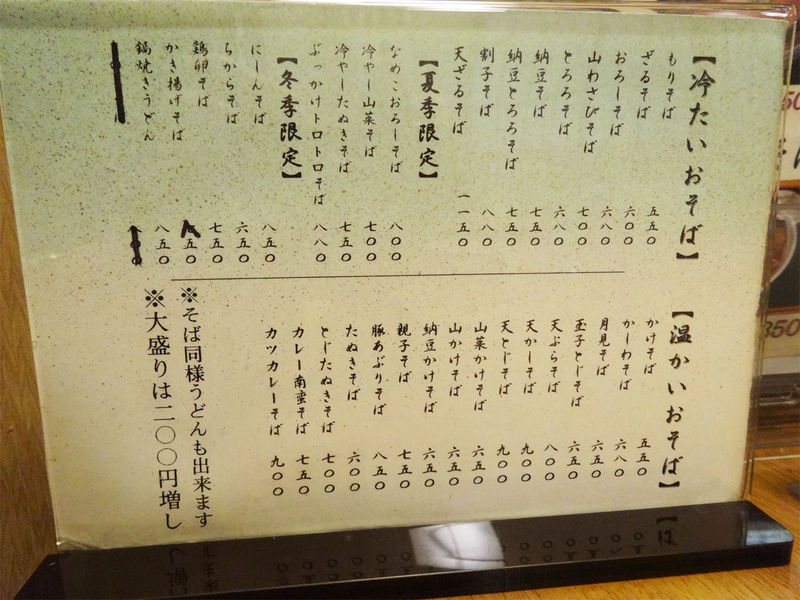 【冷たいおそば】
もりそば 五五〇
ざるそば 六〇〇
おろしそば 六八〇
山わさびそば 七〇〇
とろろそば 六八〇
納豆そば 七五〇
納豆とろろそば 七五〇
割子そば 八八〇
天ざるそば 一一五〇
【夏季限定】
なめこおろしそば 八〇〇
冷やし山菜そば 七〇〇
冷やしたぬきそば 七五〇
ぶっかけトロトロそば 八八〇
【冬季限定】
にしんそば 八五〇
ちからそば 六五〇
鶏卵そば 七五〇
かき揚げそば 五〇
鍋焼きうどん 八五〇
【温かいおそば】
かけそば 五五〇
かしわそば 六八〇
月見そば 六五〇
玉子とじそば 六五〇
天ぷらそば 八〇〇
天かしそば 九〇〇
天とじそば 九〇〇
山菜かけそば 六五〇
山かけそば 六五〇
納豆かけそば 六五〇
親子そば 七五〇
豚あぶりそば 八五〇
たぬきそば 六〇〇
とじたぬきそば 七〇〇
カレー南蛮そば 七五〇
カツカレーそば 九〇〇
※そば同様うどんも出来ます
※大盛りは二〇〇円増し
350